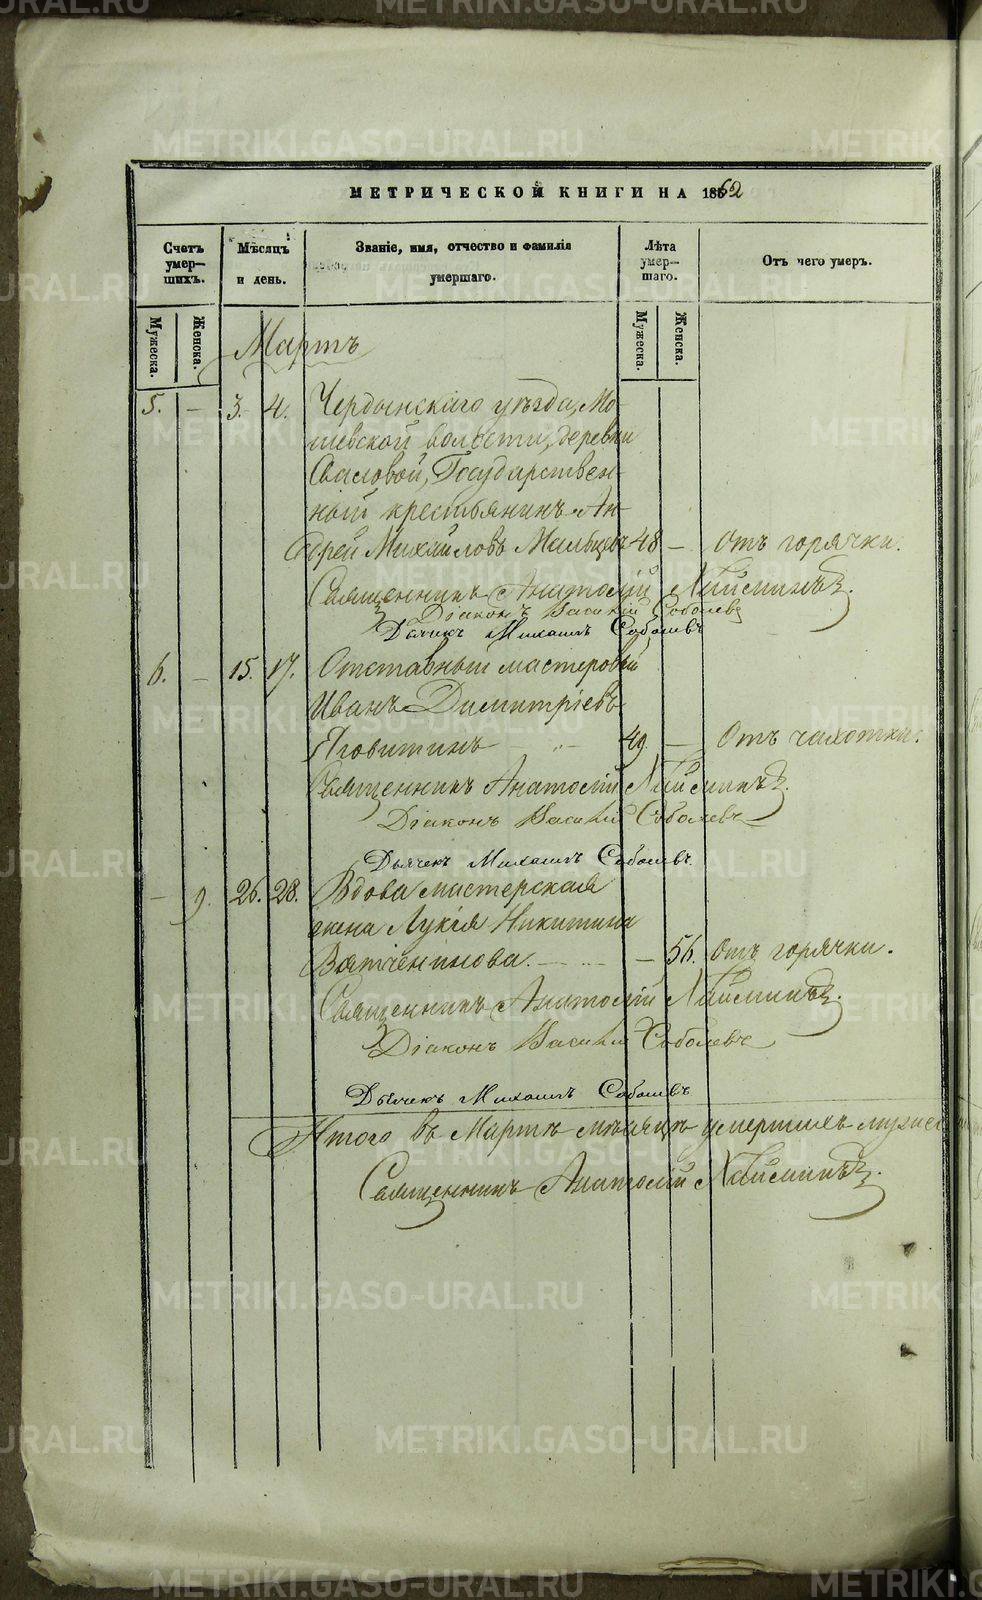 МЕТРИЧЕСКОЙ КНИГИ НА 1862
Счетъ умер-шихъ.
Мѣсяцъ и день.
Званіе, имя, отчество и фамилія умершаго.
Лѣта умер-шаго.
Отъ чего умеръ.
Мужеска.
Женска.
Мужеска.
Женска.
Мартъ
5. — 3. 4. Чердынскаго уѣзда, Мо-
шевской волости, деревни
Сваловой, Государствен-
ный крестьянинъ Ан-
дрей Михайловъ Мальцевъ 48 — Отъ горячки.
Священникъ Анатолій
Діаконъ Василій Соболевъ
Дьячекъ Михаилъ Соболевъ
6. — 15. 17. Отставный мастеровый
Иванъ Димитріевъ
Яговитинъ — 49. — Отъ чахотки.
Священникъ Анатолій
Діаконъ Василій Соболевъ
Дьячекъ Михаилъ Соболевъ
— 9. 26. 28. Вдова мастерская
жена Лукія Никитина
Вятченинова. — — 56. Отъ горячки.
Священникъ Анатолій
Діаконъ Василій Соболевъ
Дьячекъ Михаилъ Соболевъ
Итого въ Мартѣ мѣсяцѣ умершихъ мужес
Священникъ Анатолій
METRIKI.GASO-URAL.RU